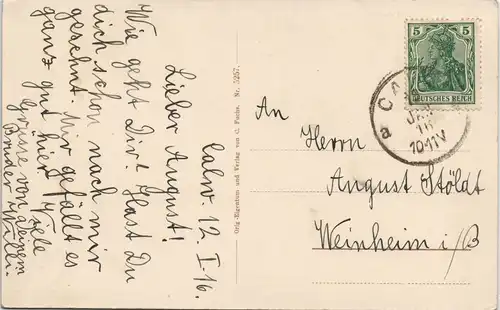 Calw. 12. I. 16.
Lieber August!
Wie geht Dir's Hast Du
dich schon nach mir
gesehnt. Mir gefällt es
ganz gut hier. Viele
Grüsse von Deinem
Bruder Willi.
Orig.-Eigentum und Verlag von C. Fuchs. Nr. 5257.
5 5
DEUTSCHES REICH
CA
JA
16
10-11V
a
An
Herrn
August Stöldt
Weinheim i/B